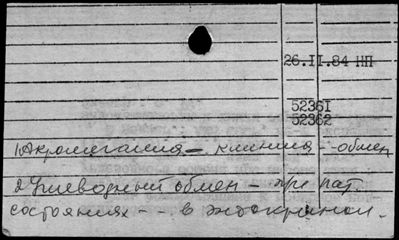 26.II.84 НП
52361
52362
1) Акромегалия - клиника - обмен
2) Углеводный обмен - при пат.
состояниях - - в эндокринол.